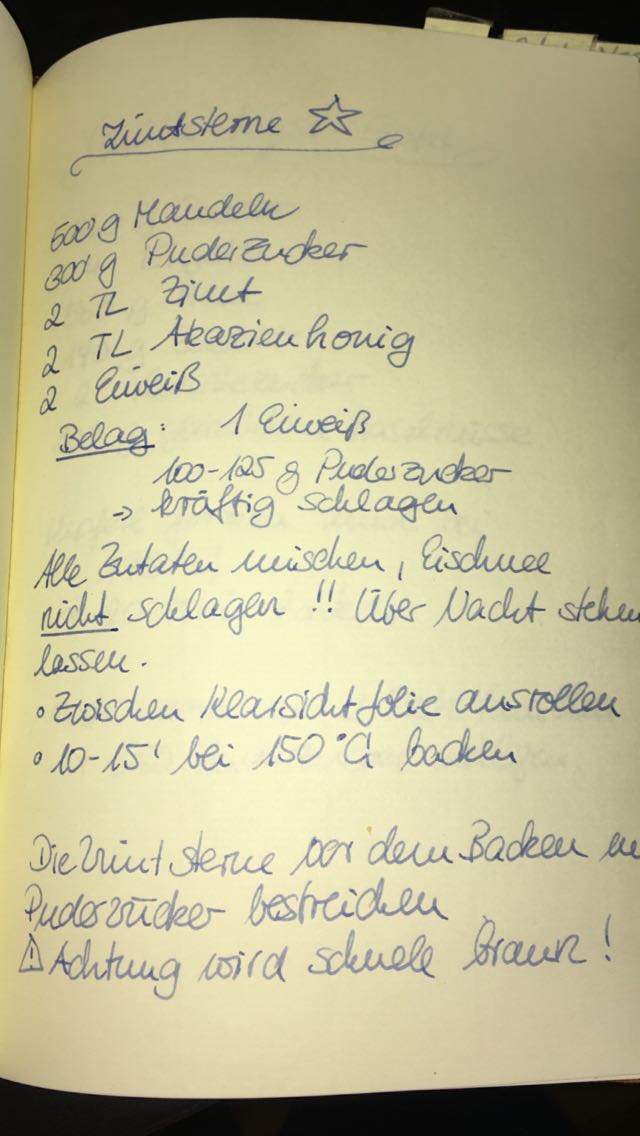 Zimtsterne
500 g Mandeln
300 g Puderzucker
2 TL Zimt
2 TL Akazienhonig
2 Eiweiß
Belag: 1 Eiweiß
100-125 g Puderzucker
→ kräftig schlagen
Alle Zutaten mischen, Eischnee
nicht schlagen!! Über Nacht stehen
lassen.
• Zwischen Klarsichtfolie ausrollen
• 10-15' bei 150°C backen
Die Zimtsterne vor dem Backen m
Puderzucker bestreichen
⚠ Achtung wird schnell braun!